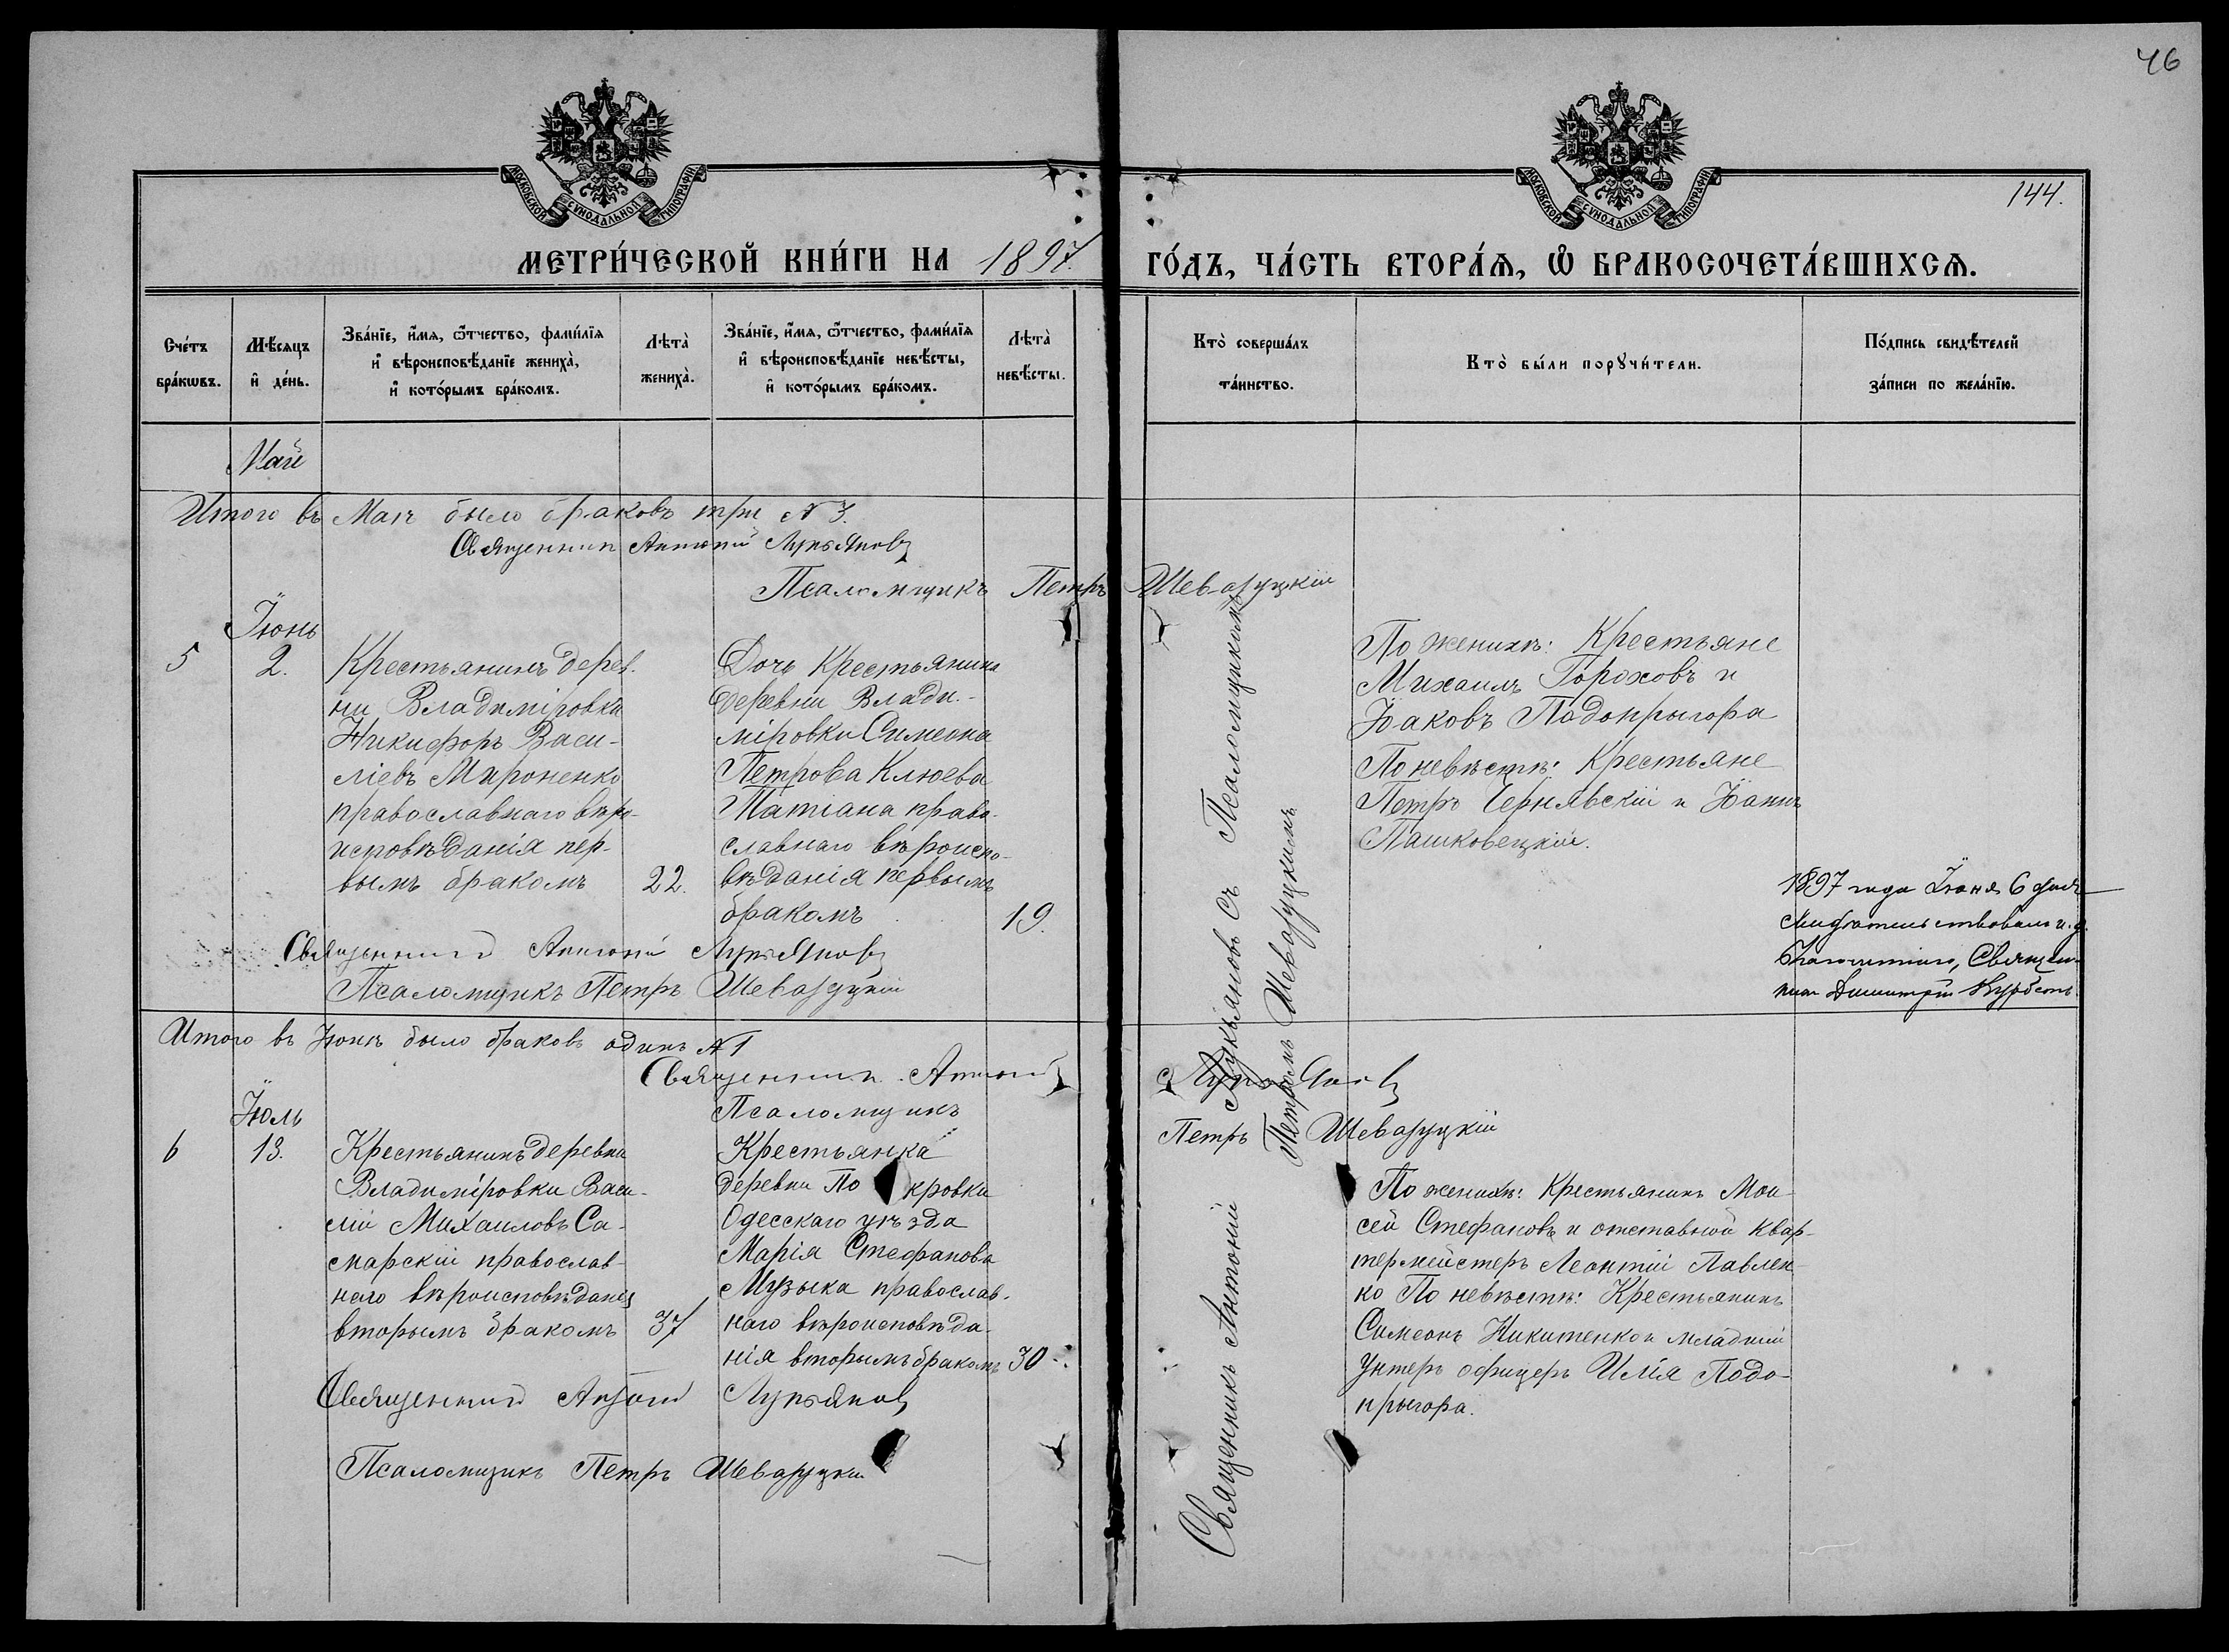 46
144.
МОСКОВСКОЙ СѴНОДАЛЬНОЙ ТИПОГРАФІИ
МОСКОВСКОЙ СѴНОДАЛЬНОЙ ТИПОГРАФІИ
МЕТРИ́ЧЕСКОЙ КНИ́ГИ НА 1897.
ГО́ДЪ, ЧА́СТЬ ВТОРА́Ѧ, Ѿ БРАКОСОЧЕТА́ВШИХСѦ.
Сче́тъ
бра́кѡвъ.
Мѣ́сяцъ
и҆ де́нь.
Зва́нїе, и҆́мѧ, ѻ҆́тчество, фами́лїѧ
и҆ вѣроисповѣ́данїе жениха̀,
и҆ кото́рымъ бра́комъ.
Лѣта̀
жениха̀.
Зва́нїе, и҆́мѧ, ѻ҆́тчество, фами́лїѧ
и҆ вѣроисповѣ́данїе невѣ́сты,
и҆ кото́рымъ бра́комъ.
Лѣта̀
невѣ́сты.
Кто̀ соверша́лъ
та́инство.
Кто̀ бы́ли порꙋчи́тели.
По́дпись свидѣ́телей
за́писи по жела́нїю.
Май
Итого въ Маѣ было браковъ три № 3.
Священникъ Антоній Лукьяновъ
Псаломщикъ Петръ Шеваруцкій
Іюнь
5
2.
Крестьянинъ дерев-
ни Владиміровки
Никифоръ Васи-
ліевъ Мироненко
православнаго вѣро-
исповѣданія пер-
вымъ бракомъ
22.
Дочь Крестьянина
деревни Влади-
міровки Симеона
Петрова Клюева
Татіана право-
славнаго вѣроиспо-
вѣданія первымъ
бракомъ
19.
Священникъ Антоній Лукьяновъ
Псаломщикъ Петръ Шеваруцкій
По женихѣ: Крестьяне
Михаилъ Гороховъ и
Іаковъ Подопрыгора
По невѣстѣ: Крестьяне
Петръ Чернявскій и Іоаннъ
Пашковецкій.
1897 года Іюня 6 дня
свидѣтельствовалъ и. д.
Благочиннаго, Священ-
никъ Димитрій
Итого въ Іюнѣ было браковъ одинъ № 1
Священникъ Антоній Лукьяновъ
Псаломщикъ Петръ Шеваруцкій
Іюль
6
13.
Крестьянинъ деревни
Владиміровки Васи-
лій Михаиловъ Са-
марскій православ-
наго вѣроисповѣданія
вторымъ бракомъ
37
Крестьянка
деревни Покровки
Одесскаго уѣзда
Марія Стефанова
Музыка православ-
наго вѣроисповѣда-
нія вторымъ бракомъ
30
Священникъ Антоній Лукьяновъ
Псаломщикъ Петръ Шеваруцкій
Священникъ Антоній Лукьяновъ съ Псаломщикомъ
Петромъ Шеваруцкимъ
По женихѣ: Крестьянинъ Мои-
сей Стефановъ и отставной Квар-
термейстеръ Леонтій Павлен-
ко По невѣстѣ: Крестьянинъ
Симеонъ Никитенко и младшій
Унтеръ офицеръ Илія Подо-
прыгора.